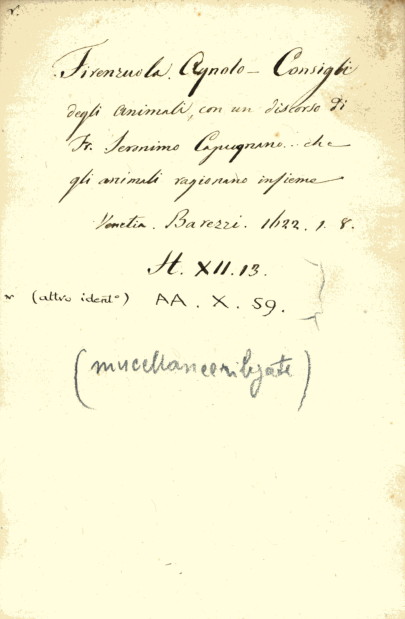 v.
Firenzuola Agnolo — Consigli
degli animali, con un discorso di
Fr. Jeronimo Capugnano... che
gli animali ragionano insieme
Venetia. Barezzi. 1622. 1. 8.
St. XII. 13.
(altro ident°) AA. X. 59.
(miscellanee rilegate)